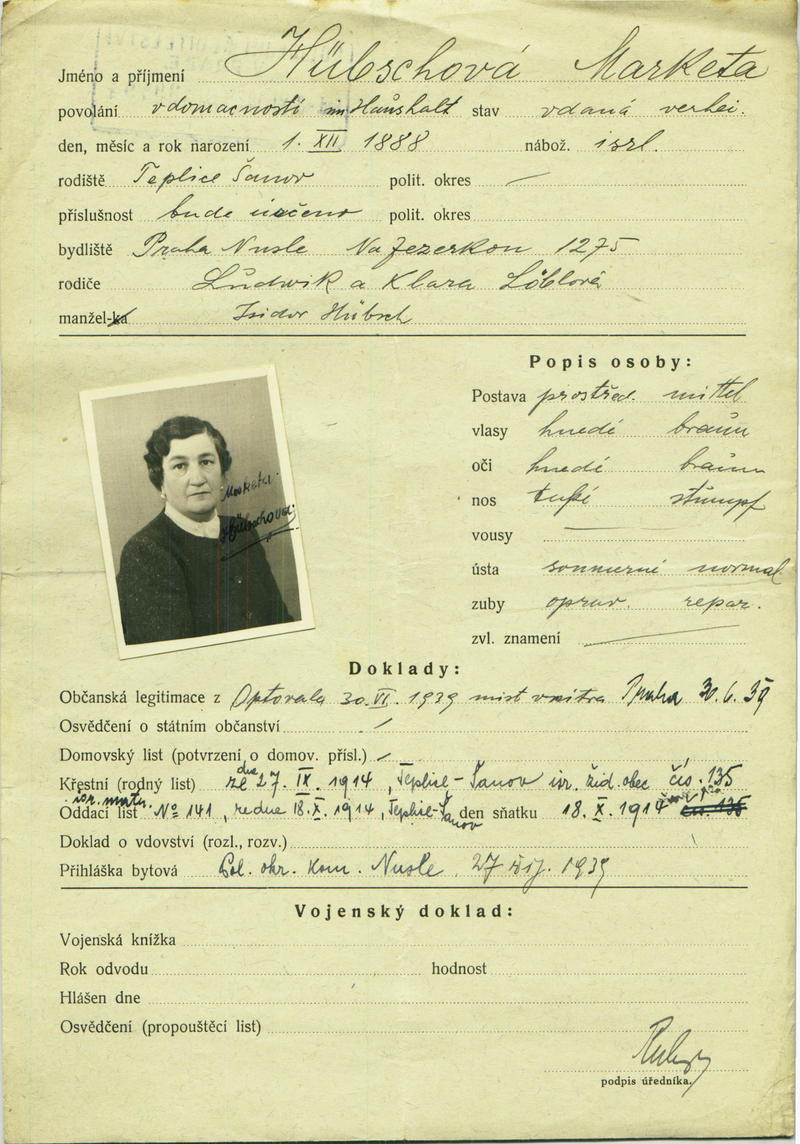 Jméno a příjmení Hübschová Marketa
povolání v domacnosti im Haushalt stav vdaná verhei.
den, měsíc a rok narození 1. XII 1888 nábož. isrl.
rodiště Teplice Šanov polit. okres —
příslušnost bude určeno polit. okres
bydliště Praha Nusle Na Jezerkou 1275
rodiče Ludwik a Klara Löblová
manžel-ka Isidor Hübsch
Popis osoby:
Postava prostřed. mittel
vlasy hnedé braun
oči hnedé braun
nos tupé stumpf
vousy —
ústa soumerné normal
zuby oprav. repar.
zvl. znamení —
Marketa
Hübschova
Doklady:
Občanská legitimace z Optovala 30. VI. 1939 mist vnitra Praha 30.6.39
Osvědčení o státním občanství
Domovský list (potvrzení o domov. přísl.)
Křestní (rodný list) ze dne 27. IX. 1914, Teplice-Šanov isr. žid. obec čís. 135
Oddací list isr. matr. No 141, ze dne 18. X. 1914, Teplice-Šanov den sňatku 18. X. 1914
Doklad o vdovství (rozl., rozv.)
Přihláška bytová Pol. okr. kom. Nusle, 27 1939
Vojenský doklad:
Vojenská knížka
Rok odvodu hodnost
Hlášen dne
Osvědčení (propouštěcí list)
podpis úředníka.